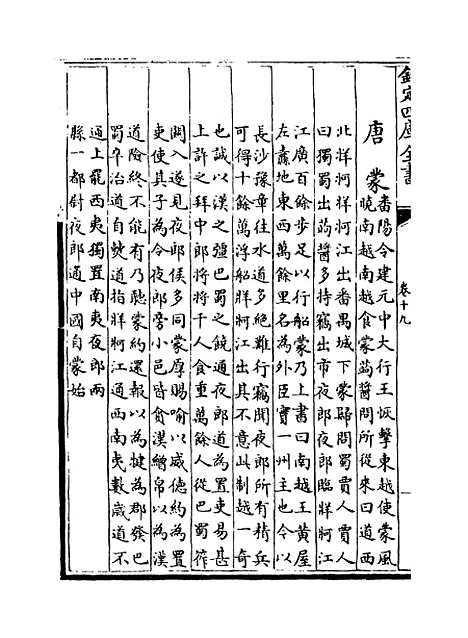 欽定四庫全書
卷十九
唐蒙
番陽令建元中大行王恢擊東越使蒙風
曉南越南越食蒙蒟醬問所從來曰道西
北牂牁牂牁江出番禺城下蒙歸問蜀賈人賈人
曰獨蜀出蒟醬多持竊出市夜郎夜郎臨牂牁江
江廣百餘步足以行船蒙乃上書曰南越王黃屋
左纛地東西萬餘里名為外臣實一州主也今以
長沙豫章往水道多絶難行竊聞夜郎所有精兵
可得十餘萬浮船牂牁江出其不意此制越一奇
也誠以漢之彊巴蜀之饒通夜郎道為置吏易甚
上許之拜中郎將將千人食重萬餘人從巴蜀筰
關入遂見夜郎侯多同蒙厚賜喻以威德約為置
吏使其子為令夜郎旁小邑皆貪漢繒帛以為漢
道險終不能有乃聽蒙約還報以為犍為郡發巴
蜀卒治道自僰道指牂牁江通西南夷數歲道不
通上罷西夷獨置南夷夜郎兩
縣一都尉夜郎通中國自蒙始